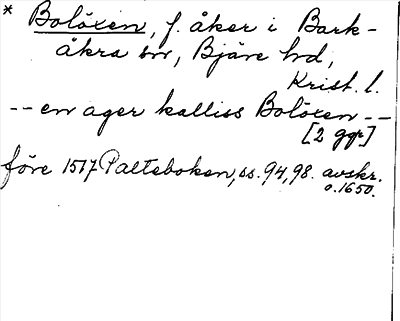 * Bolöxen, f. åker i Bark-
åkra sn, Bjäre hd,
Krist. l.
-- en ager kalliss Boløxen --
[2 ggr]
före 1517 Palteboken, ss. 94, 98. avskr.
o. 1650.